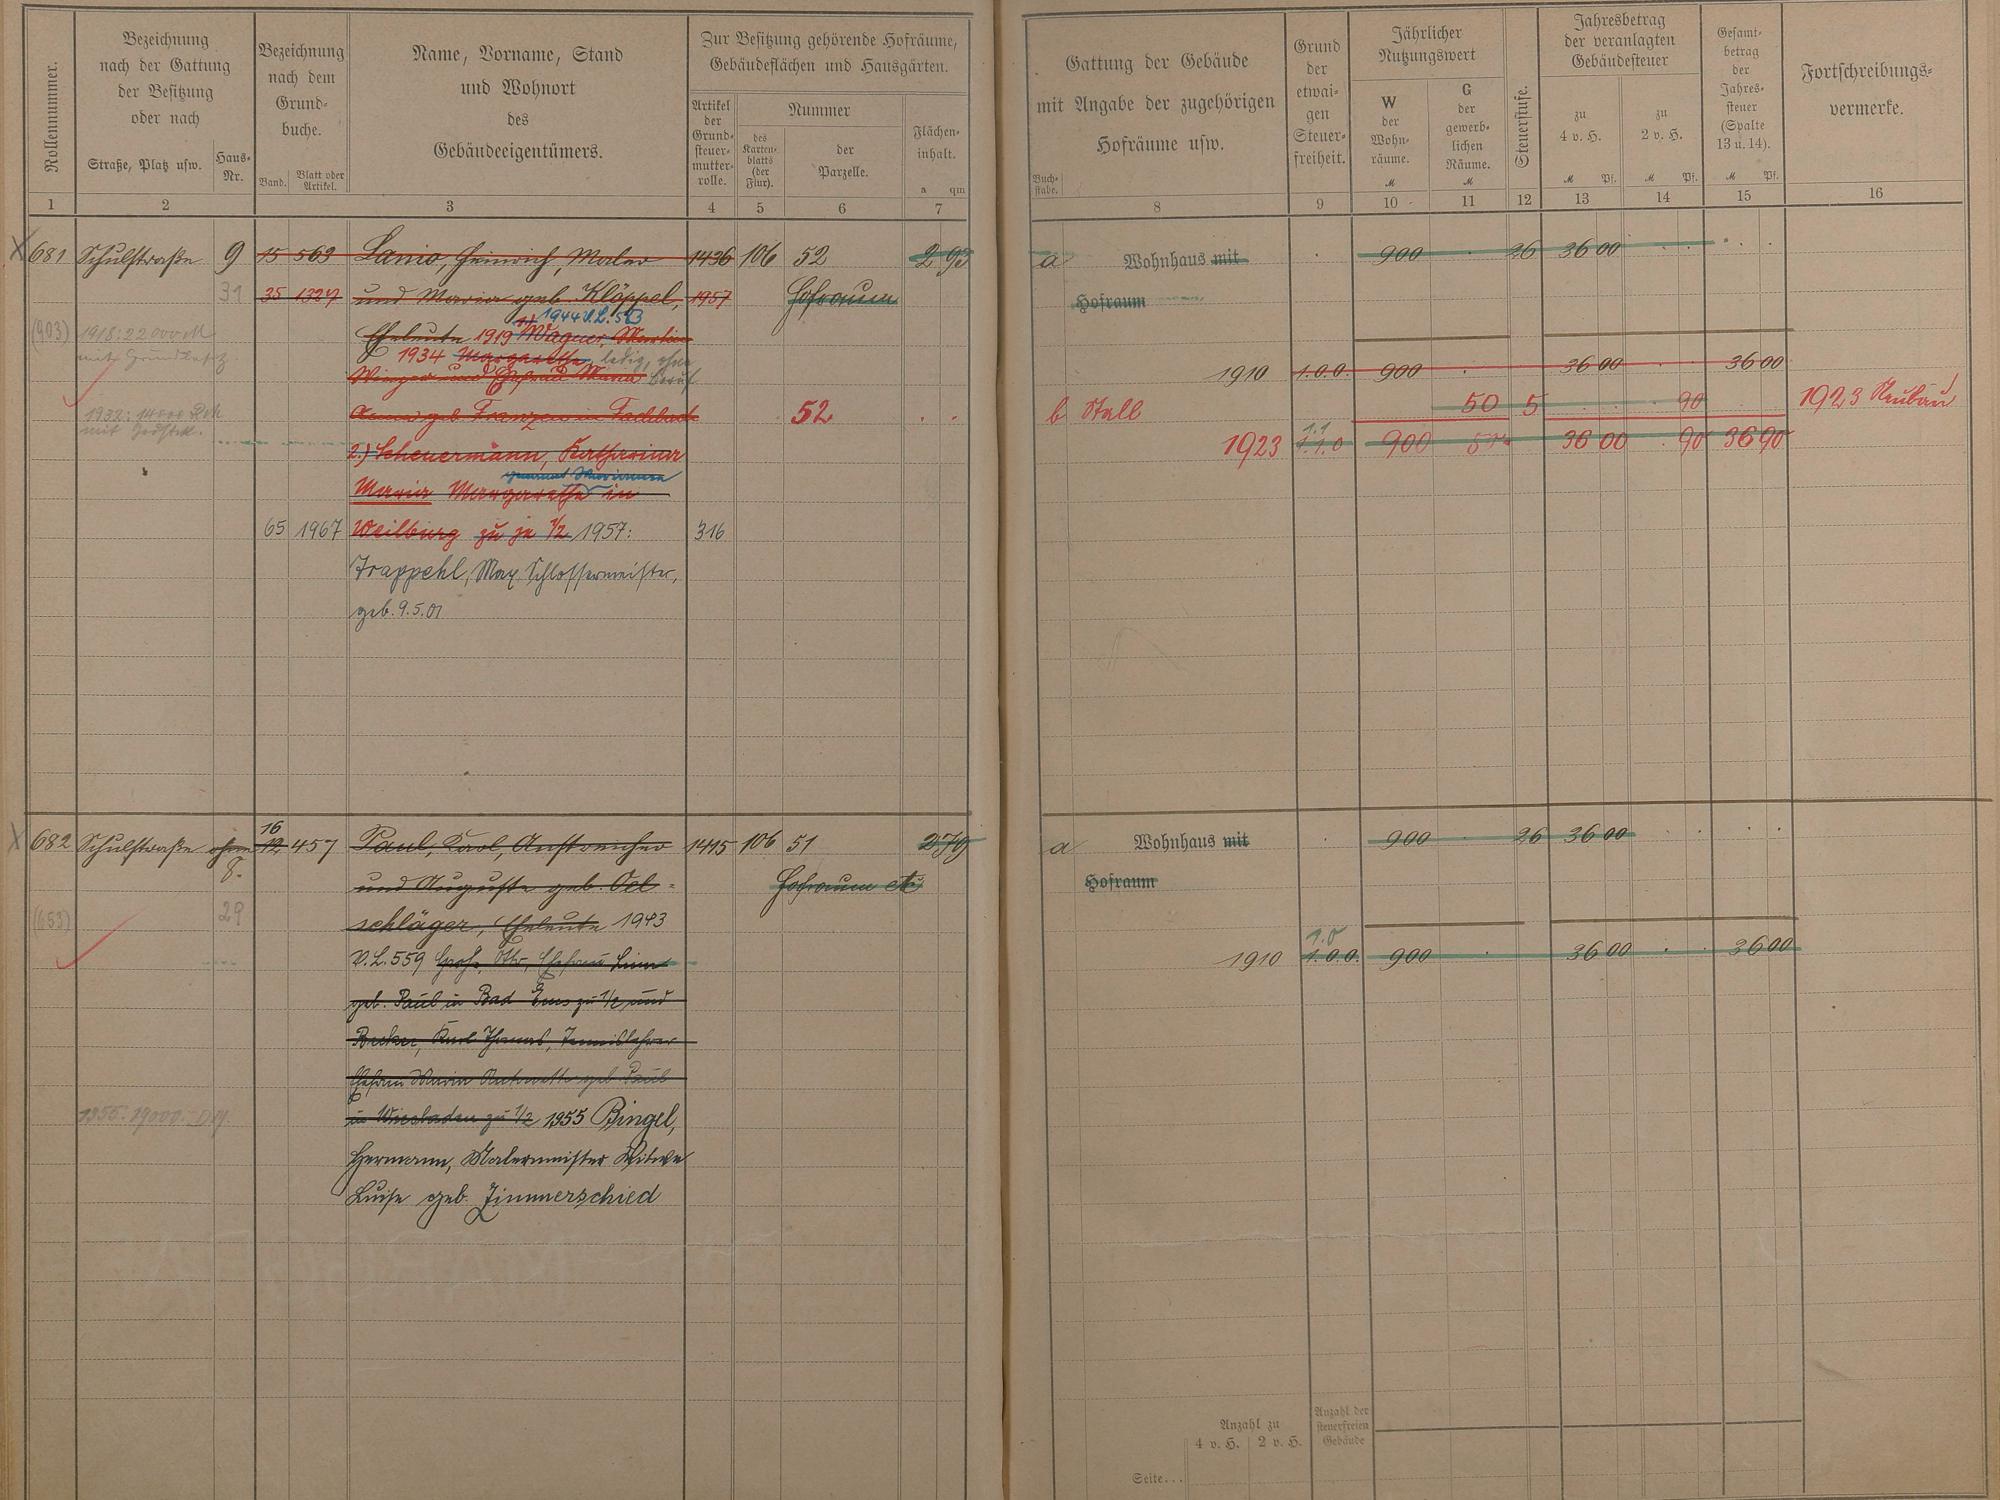 Rollennummer.
Bezeichnung
nach der Gattung
der Besitzung
oder nach
Straße, Platz usw.
Haus-
Nr.
Bezeichnung
nach dem
Grund-
buche.
Band.
Blatt oder
Artikel.
Name, Vorname, Stand
und Wohnort
des
Gebäudeeigentümers.
Zur Besitzung gehörende Hofräume,
Gebäudeflächen und Hausgärten.
Artikel
der
Grund-
steuer-
mutter-
rolle.
Nummer
des
Karten-
blatts
(der
Flur).
der
Parzelle.
Flächen-
inhalt.
a qm
1 2 3 4 5 6 7
681 Schulstraße 9 15 563 Lanio, Heinrich, Maler 1436 106 52 2 93
31 35 1327 und Maria geb. Klöppel, 1957 Hofraum
1944 V.L. 563
(903) 1918: 22000 M Eheleute 1919 1) Wagner, Martin
mit Grundbesitz 1934 Margarethe, ledig, ohne
Winzer und Ehefrau Maria Beruf
1932: 14000 Rm Anna geb. Franzen in Fachbach 52
2.) Scheuermann, Katharina
genannt Marianna
Maria Margarethe in
65 1967 Weilburg zu je 1/2 1957: 316
Trappehl, Max Schlossermeister,
geb. 9.5.01
16
682 Schulstraße ohne 12 457 Paul, Karl, Anstreicher 1415 106 51 2 79
8. und Auguste geb. Oel- Hofraum etc
(653) 29 schläger, Eheleute 1943
V.L. 559 Groß, Otto, Ehefrau
geb. Paul in Bad Ems zu 1/2 und
Becker, Karl Thomas, Tennislehrer
Ehefrau Maria Antonette geb. Paul
1955: 19000.- DM. in Wiesbaden zu 1/2 1955 Bingel,
Hermann, Malermeister Witwe
Luise geb. Zimmerschied
Gattung der Gebäude
mit Angabe der zugehörigen
Hofräume usw.
Buch-
stabe.
Grund
der
etwai-
gen
Steuer-
freiheit.
Jährlicher
Nutzungswert
W
der
Wohn-
räume.
M
G
der
gewerb-
lichen
Räume.
M
Steuerstufe.
Jahresbetrag
der veranlagten
Gebäudesteuer
zu
4 v. H.
M Pf.
zu
2 v. H.
M Pf.
Gesamt-
betrag
der
Jahres-
steuer
(Spalte
13 u. 14).
M Pf.
Fortschreibungs-
vermerke.
8 9 10 11 12 13 14 15 16
a Wohnhaus mit 900 26 36 00
Hofraum
1910 1.0.0. 900 36 00 36 00
b Stall 50 5 90 1923 Neubau
1.1
1923 1.1.0 900 50 36 00 90 36 90
a Wohnhaus mit 900 26 36 00
Hofraum
1.0
1910 1.0.0. 900 36 00 36 00
Anzahl zu
4 v. H. 2 v. H.
Anzahl der
steuerfreien
Gebäude
Seite...